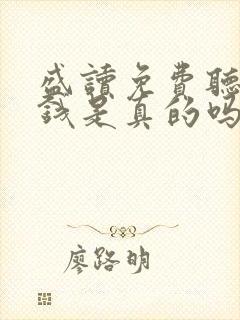 盛讀免費聽
錢是真的嗎
廖路明